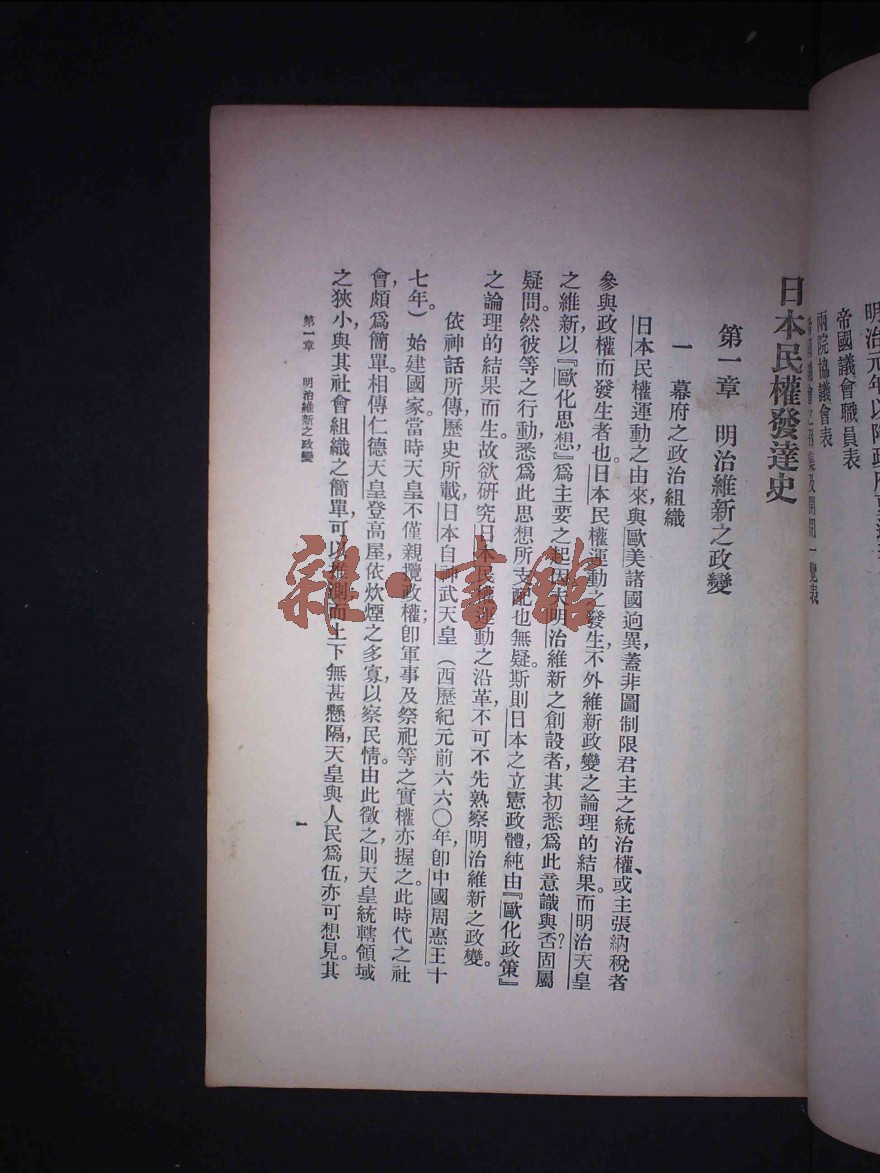 明治元年以降政府
帝國議會職員表
兩院協議會表
及開閉一覽表
日本民權發達史
第一章 明治維新之政變
一 幕府之政治組織
日本民權運動之由來，與歐美諸國逈異，蓋非圖制限君主之統治權、或主張納稅者
參與政權而發生者也。日本民權運動之發生，不外維新政變之論理的結果。而明治天皇
之維新，以『歐化思想』爲主要之起因，夫明治維新之創設者，其初悉爲此意識與否？固屬
疑問，然彼等之行動，悉爲此思想所支配也無疑。斯則日本之立憲政體，純由『歐化政策』
之論理的結果而生。故欲研究日本民權運動之沿革，不可不先熟察明治維新之政變。
依神話所傳，歷史所載，日本自神武天皇（西歷紀元前六六〇年，卽中國周惠王十
七年）始建國家。當時天皇不僅親攬政權；卽軍事及祭祀等之實權亦握之。此時代之社
會，頗爲簡單。相傳仁德天皇登高屋，依炊煙之多寡，以察民情。由此徵之，則天皇統轄領域
之狹小，與其社會組織之簡單，可以推測而上下無甚懸隔，天皇與人民爲伍，亦可想見。其
第一章 明治維新之政變
一
雜·書館